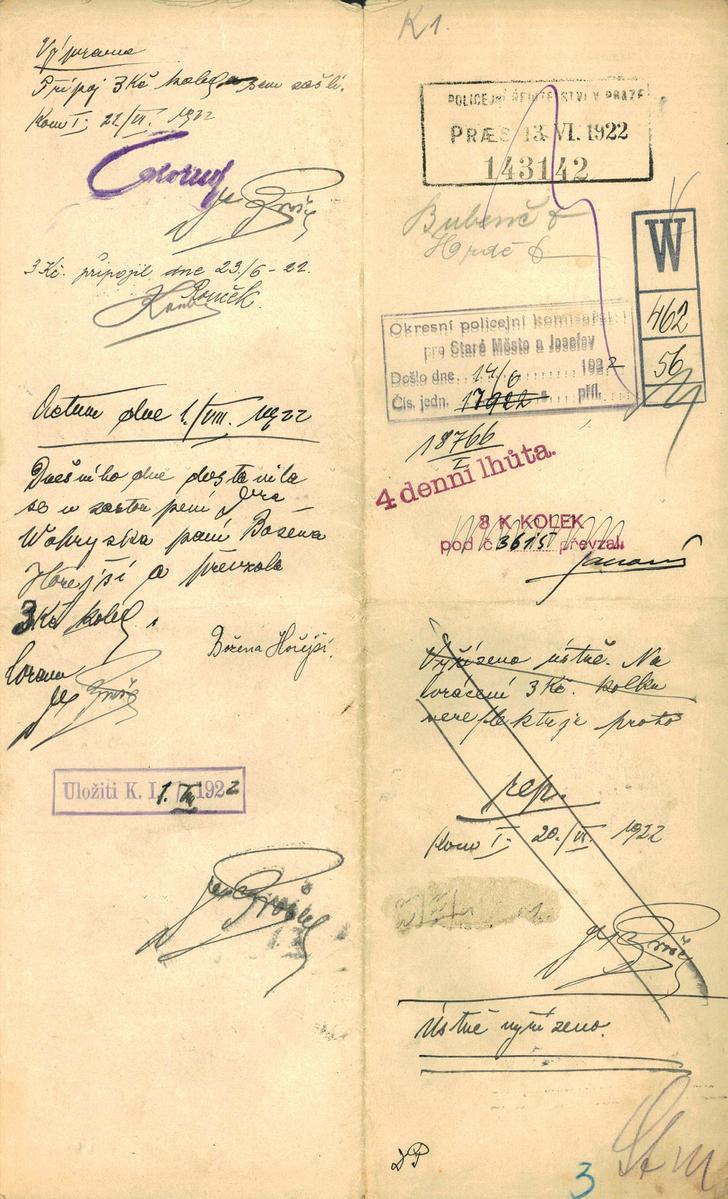 Výprava
Připoj 3Kč kolek sem zašli.
Kom I. 22/VI. 1922
3 Kč. připojil dne 23/6 - 22.
Actum dne 1./VIII. 1922
Dnešního dne dostavila
se v zastoupení Dra
paní Božena
Hořejší a převzala
3Kč kolek.
Božena Hořejší.
Uložiti K. I. 1. 1922
K1.
POLICEJNÍ ŘEDITELSTVÍ V PRAZE
PRÆS 13. VI. 1922
143142
Bubeneč
W
462
56
Okresní policejní komisařství
pro Staré Město a Josefov
Došlo dne 14/6 1922
Čís. jedn. 17922 příl.
18766
I
4 denní lhůta.
8 K KOLEK
pod č. 36151 převzal:
Vyřízeno ústně. Na
vrácení 3 Kč. kolku
nereflektuje proto
rep.
Kom I. 20./VI. 1922
Ústně vyřízeno.
3